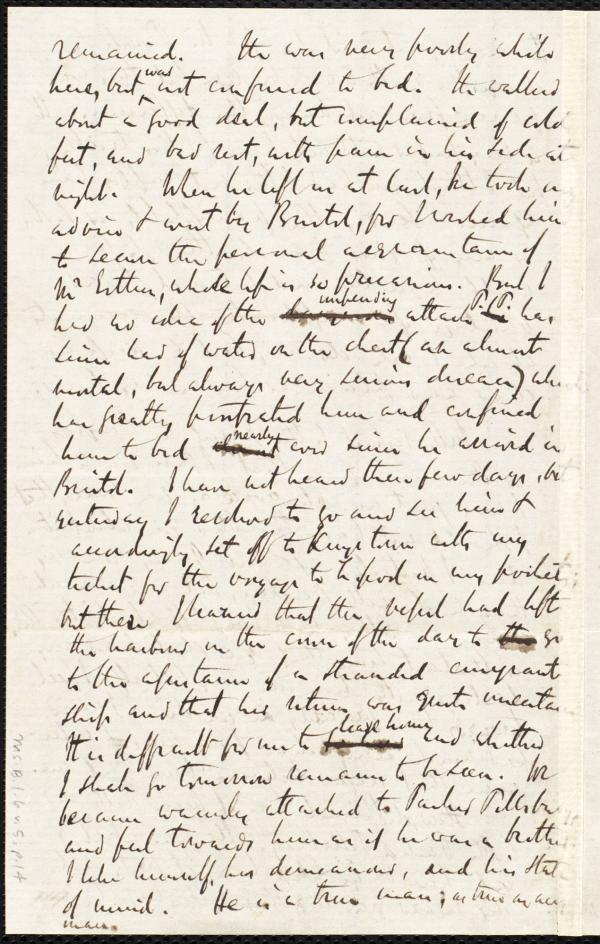 remained. He was very poorly while
here, but was not confined to bed. He walked
about a good deal, but complained of cold
feet, and bad rest, with pain in his side at
night. When he left us at last, he took
advice & went by Bristol, for I wished him
to secure the personal acquaintance of
Mr Estlin, whose life is so precarious. But I
had no idea of the impending attack P.P. has
since had of water on the chest (an almost
mortal, but always very serious disease)
has greatly prostrated him and confined
him to bed nearly ever since he arrived in
Bristol. I have not heard these few days,
yesterday I resolved to go and see him &
accordingly set off to Kingstown with my
ticket for the voyage to Lpool in my pocket;
but there I learned that the vessel had left
the harbour in the course of the day to go
to the assistance of a stranded emigrant
ship and that her return was quite uncertain
It is difficult for me to leave home and whether
I shall go tomorrow remains to be seen. We
became warmly attached to Parker Pillsbury
and feel towards him as if he was a brother.
I like himself, his demeanour, and his state
of mind. He is a true man; as true as any
man.
Ms.B.1.6 v.5, p.14